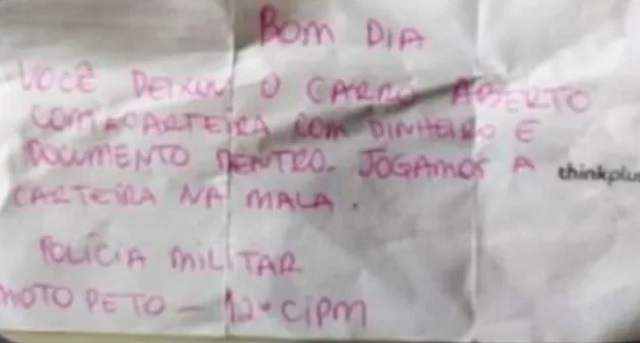 BOM DIA
VOCÊ DEIXOU O CARRO ABERTO
COM A CARTEIRA COM DINHEIRO E
DOCUMENTO DENTRO. JOGAMOS A
thinkplus
CARTEIRA NA MALA.
POLÍCIA MILITAR
MOTO PETO - 12ª CIPM